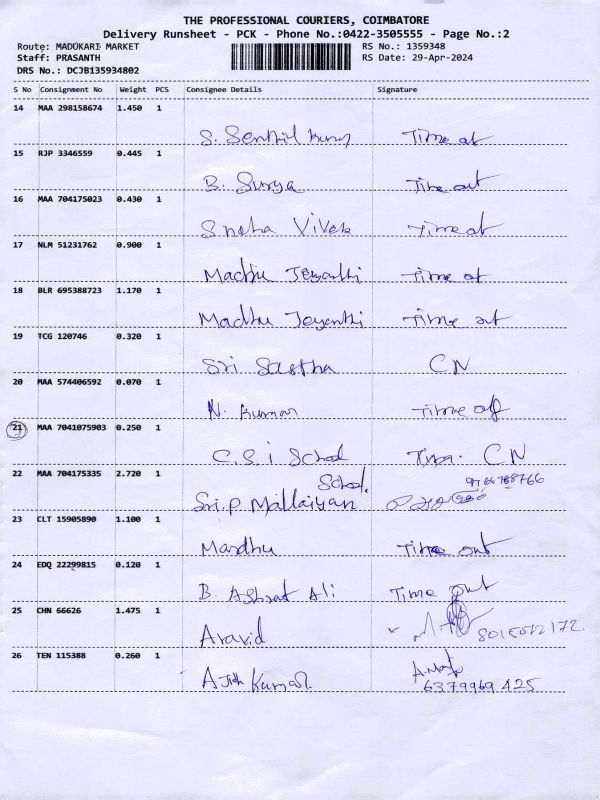 THE PROFESSIONAL COURIERS, COIMBATORE
Delivery Runsheet - PCK - Phone No.:0422-3505555 - Page No.:2
Route: MADUKARI MARKET RS No.: 1359348
Staff: PRASANTH RS Date: 29-Apr-2024
DRS No.: DCJB135934802
S No Consignment No Weight PCS Consignee Details Signature
14 MAA 298158674 1.450 1
S. Senthil Kumar Time at
15 RJP 3346559 0.445 1
B. Surya Time out
16 MAA 704175023 0.430 1
Sneha Vivek Time at
17 NLM 51231762 0.900 1
Madhu Jeyanthi Time at
18 BLR 695388723 1.170 1
Madhu Jeyanthi Time at
19 TCG 120746 0.320 1
Sri Sastha CN
20 MAA 574406592 0.070 1
N. Kumar Time off
21 MAA 7041075903 0.250 1
C.S.i School CN
22 MAA 704175335 2.720 1
School.
Sri.P Mallaiyan
23 CLT 15905890 1.100 1
Mardhu Time out
24 EDQ 22299815 0.120 1
B. Ashrat Ali Time out
25 CHN 66626 1.475 1
Aravid
26 TEN 115388 0.260 1
Ajith Kumar 6379969425